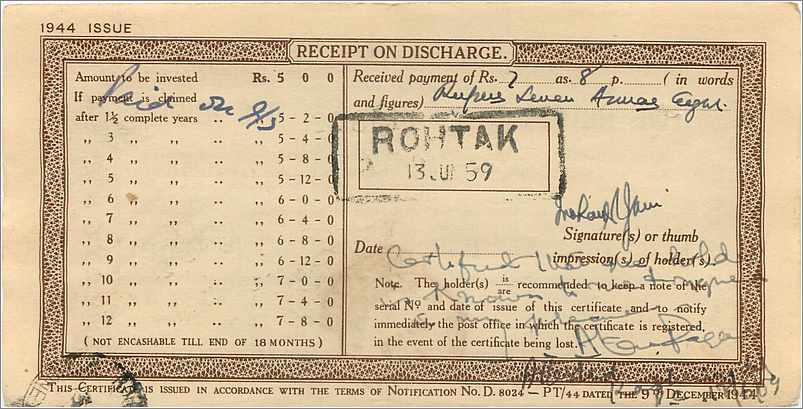 1944 ISSUE
RECEIPT ON DISCHARGE.
Amount to be invested Rs. 5 0 0
If payment is claimed
after 1½ complete years .. ,, 5 - 2 - 0
,, 3 ,, ,, .. ,, 5 - 4 - 0
,, 4 ,, ,, .. ,, 5 - 8 - 0
,, 5 ,, ,, .. ,, 5 - 12 - 0
,, 6 ,, ,, .. ,, 6 - 0 - 0
,, 7 ,, ,, .. ,, 6 - 4 - 0
,, 8 ,, ,, .. ,, 6 - 8 - 0
,, 9 ,, ,, .. ,, 6 - 12 - 0
,, 10 ,, ,, .. ,, 7 - 0 - 0
,, 11 ,, ,, .. ,, 7 - 4 - 0
,, 12 ,, ,, .. ,, 7 - 8 - 0
(NOT ENCASHABLE TILL END OF 18 MONTHS)
Received payment of Rs. 7 as. 8 p. (in words
and figures) Rupees Seven Annas Eight
ROHTAK
13 JU 59
Signature(s) or thumb
impression(s) of holder(s)
Date
Certified
Note. The holder(s) is/are recommended to keep a note of the
serial No and date of issue of this certificate and to notify
immediately the post office in which the certificate is registered,
in the event of the certificate being lost.
THIS CERTIFICATE IS ISSUED IN ACCORDANCE WITH THE TERMS OF NOTIFICATION No. D. 8024 – PT/44 DATED THE 9TH DECEMBER 1944